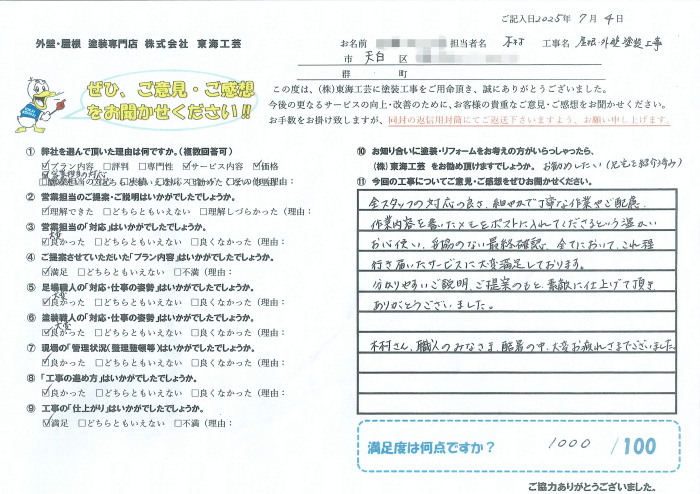 ご記入日2025年 7月 4日
外壁・屋根 塗装専門店 株式会社 東海工芸
お名前 担当者名 木村 工事名 屋根・外壁塗装工事
市 天白 区
郡 町
ぜひ、ご意見・ご感想
をお聞かせください!!
この度は、(株)東海工芸に塗装工事をご用命頂き、誠にありがとうございました。
今後の更なるサービスの向上・改善のために、お客様の貴重なご意見・ご感想をお聞かせください。
お手数をお掛け致しますが、同封の返信用封筒にてご返送下さいますよう、お願い申し上げます。
① 弊社を選んで頂いた理由は何ですか。(複数回答可)
☑プラン内容 □評判 □専門性 ☑サービス内容 ☑価格
☑営業担当の対応
② 営業担当のご提案・ご説明はいかがでしたでしょうか。
☑理解できた □どちらともいえない □理解しづらかった(理由:
③ 営業担当の「対応」はいかがでしたでしょうか。
大変
☑良かった □どちらともいえない □良くなかった(理由:
④ ご提案させていただいた「プラン内容」はいかがでしたでしょうか。
☑満足 □どちらともいえない □不満(理由:
⑤ 足場職人の「対応・仕事の姿勢」はいかがでしたでしょうか。
大変
☑良かった □どちらともいえない □良くなかった(理由:
⑥ 塗装職人の「対応・仕事の姿勢」はいかがでしたでしょうか。
大変
☑良かった □どちらともいえない □良くなかった(理由:
⑦ 現場の「管理状況(整理整頓等)はいかがでしたでしょうか。
☑良かった □どちらともいえない □良くなかった(理由:
⑧ 「工事の進め方」はいかがでしたでしょうか。
☑良かった □どちらともいえない □良くなかった(理由:
⑨ 工事の「仕上がり」はいかがでしたでしょうか。
☑満足 □どちらともいえない □不満(理由:
⑩ お知り合いに塗装・リフォームをお考えの方がいらっしゃったら、
(株)東海工芸 をお勧め頂けますでしょうか。 お勧めしたい(兄宅を紹介済み)
⑪ 今回の工事についてご意見・ご感想をぜひお聞かせください。
全スタッフの対応の良さ、細やかで丁寧な作業やご配慮、
作業内容を書いたメモをポストに入れてくださるという温かい
お心使い、妥協のない最終確認、全てにおいて、これ程
行き届いたサービスに大変満足しております。
分かりやすいご説明、ご提案のもと、素敵に仕上げて頂き
ありがとうございました。
木村さん、職人のみなさま、酷暑の中、大変お疲れさまでございました。
満足度は何点ですか? 1000 /100
ご協力ありがとうございました。